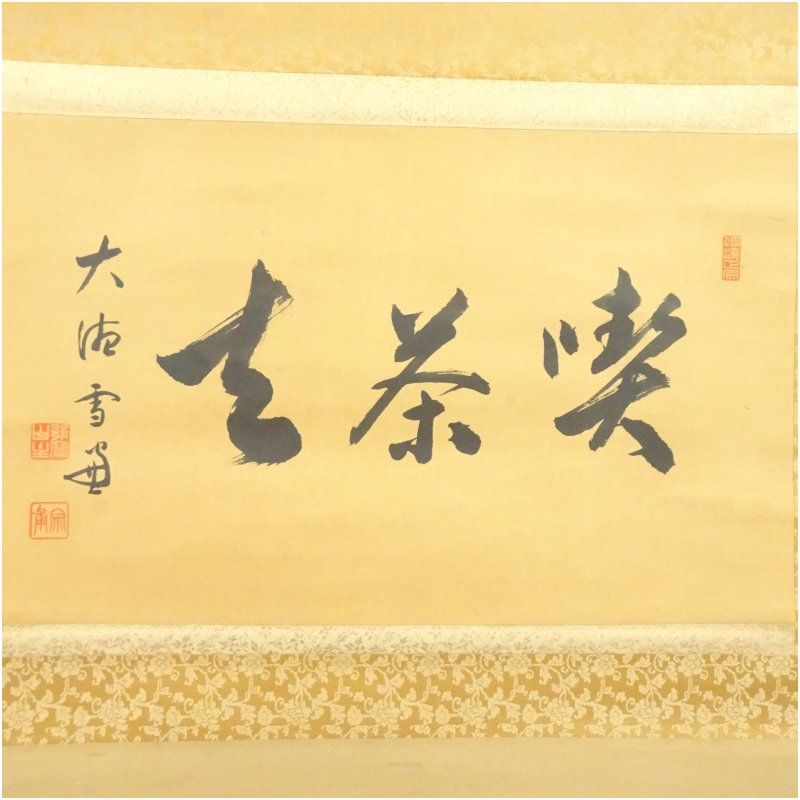 喫茶去
大徳雪